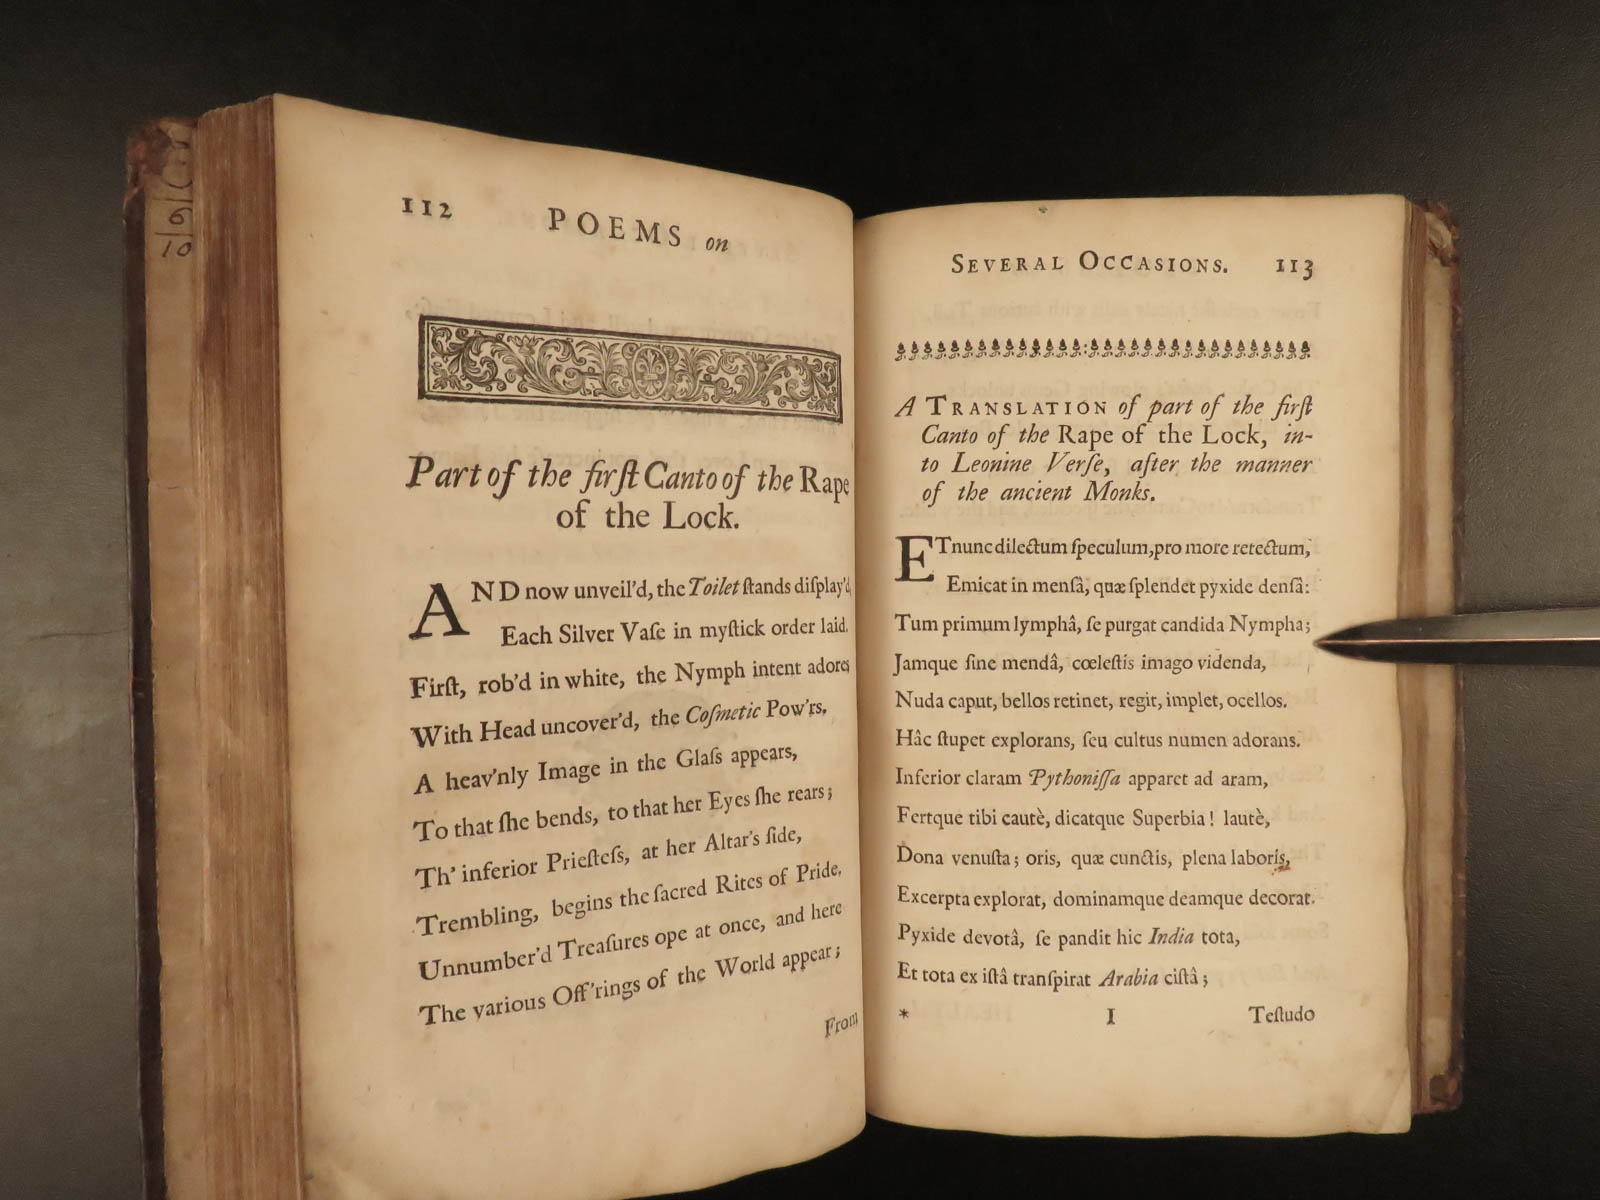 6
10
112 POEMS on
Part of the firſt Canto of the Rape
of the Lock.
AND now unveil'd, the Toilet ſtands diſplay'd,
Each Silver Vaſe in myſtick order laid.
Firſt, rob'd in white, the Nymph intent adores
With Head uncover'd, the Coſmetic Pow'rs.
A heav'nly Image in the Glaſs appears,
To that ſhe bends, to that her Eyes ſhe rears;
Th' inferior Prieſteſs, at her Altar's ſide,
Trembling, begins the ſacred Rites of Pride.
Unnumber'd Treaſures ope at once, and here
The various Off'rings of the World appear;
From
SEVERAL OCCASIONS. 113
A TRANSLATION of part of the firſt
Canto of the Rape of the Lock, in-
to Leonine Verſe, after the manner
of the ancient Monks.
ETnunc dilectum ſpeculum, pro more retectum,
Emicat in menſâ, quæ ſplendet pyxide denſâ:
Tum primum lymphâ, ſe purgat candida Nympha;
Jamque ſine mendâ, cœleſtis imago videnda,
Nuda caput, bellos retinet, regit, implet, ocellos.
Hâc ſtupet explorans, ſeu cultus numen adorans.
Inferior claram Pythoniſſa apparet ad aram,
Fertque tibi cautè, dicatque Superbia! lautè,
Dona venuſta; oris, quæ cunctis, plena laboris,
Excerpta explorat, dominamque deamque decorat.
Pyxide devotâ, ſe pandit hic India tota,
Et tota ex iſtâ tranſpirat Arabia ciſtâ;
* I Teſtudo